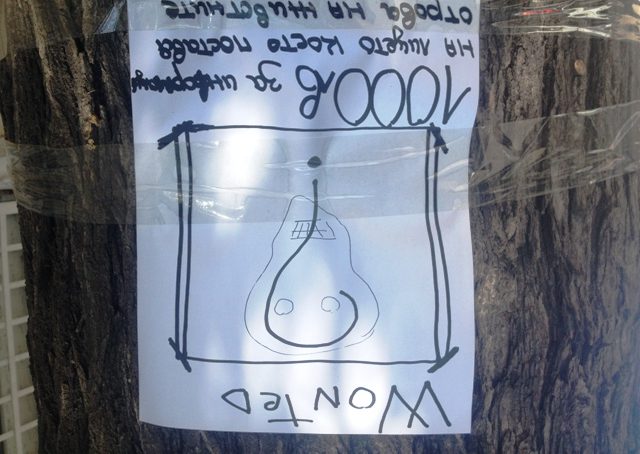 WoNTeD
1000лв за информац
НА лицето което поставя
отрова НА животните